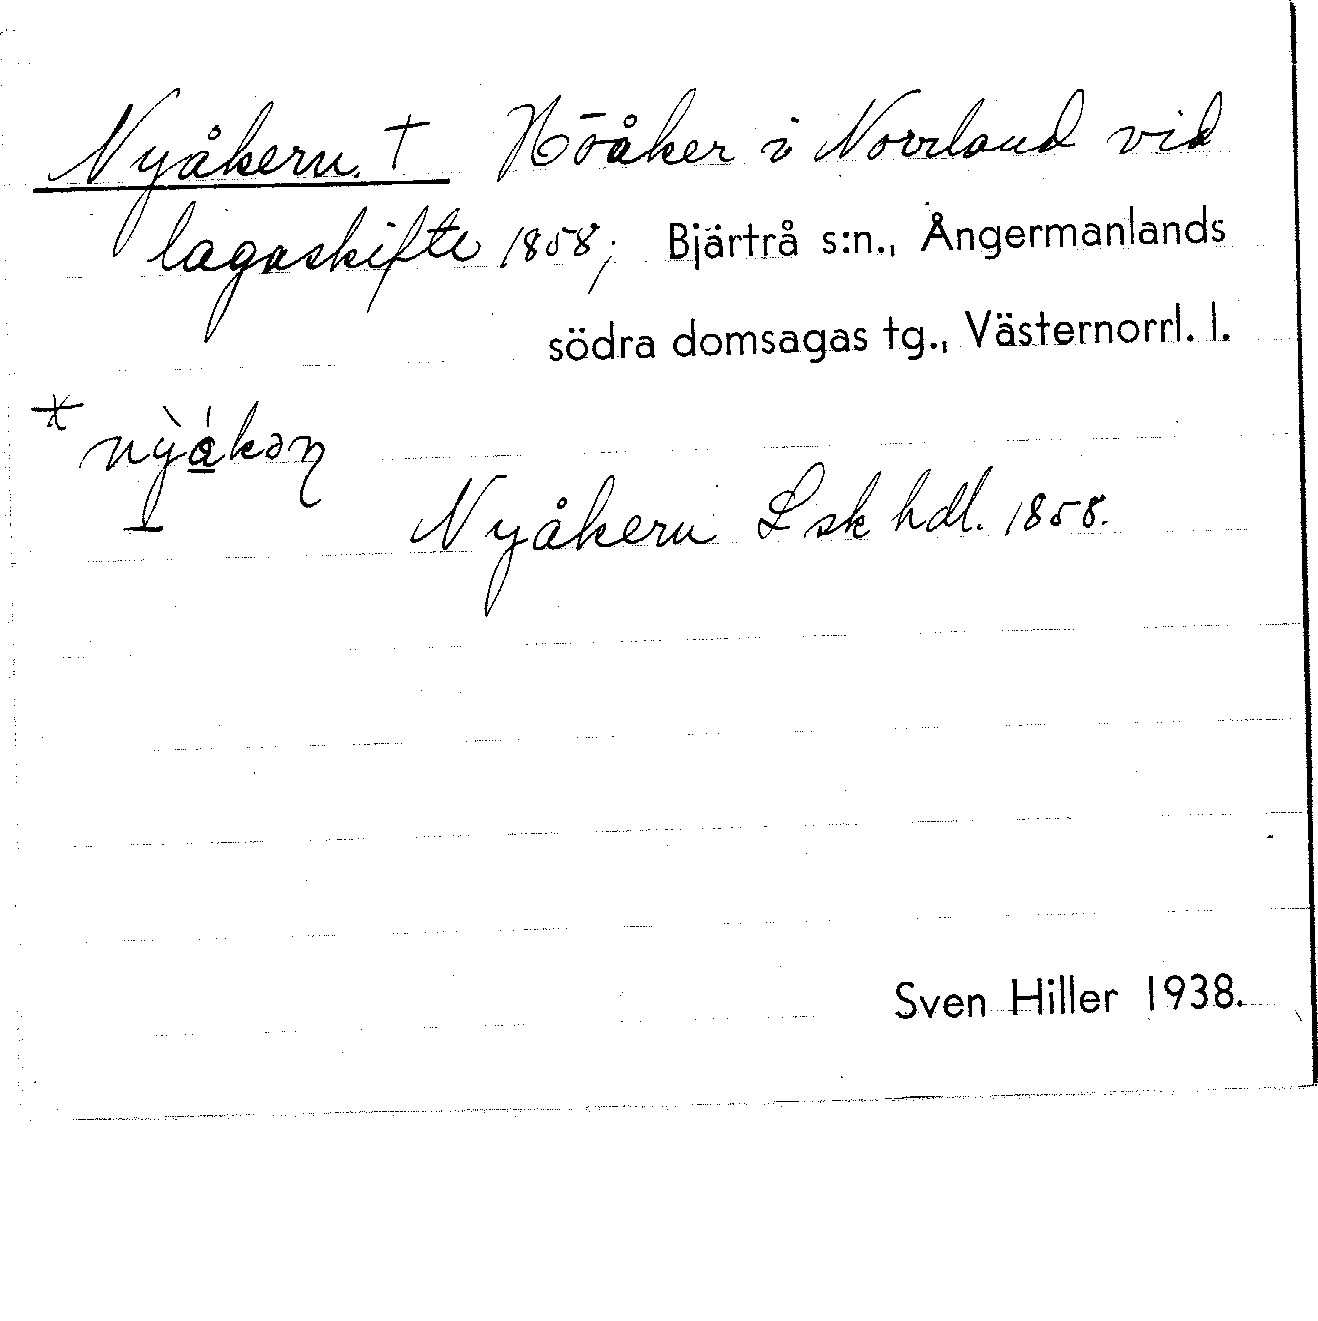 Nyåkern. † Höåker i Norrland vid
lagaskifte 1858; Bjärtrå s:n., Ångermanlands
södra domsagas tg., Västernorrl. l.
Nyåkern Lsk hdl. 1858.
Sven Hiller 1938.